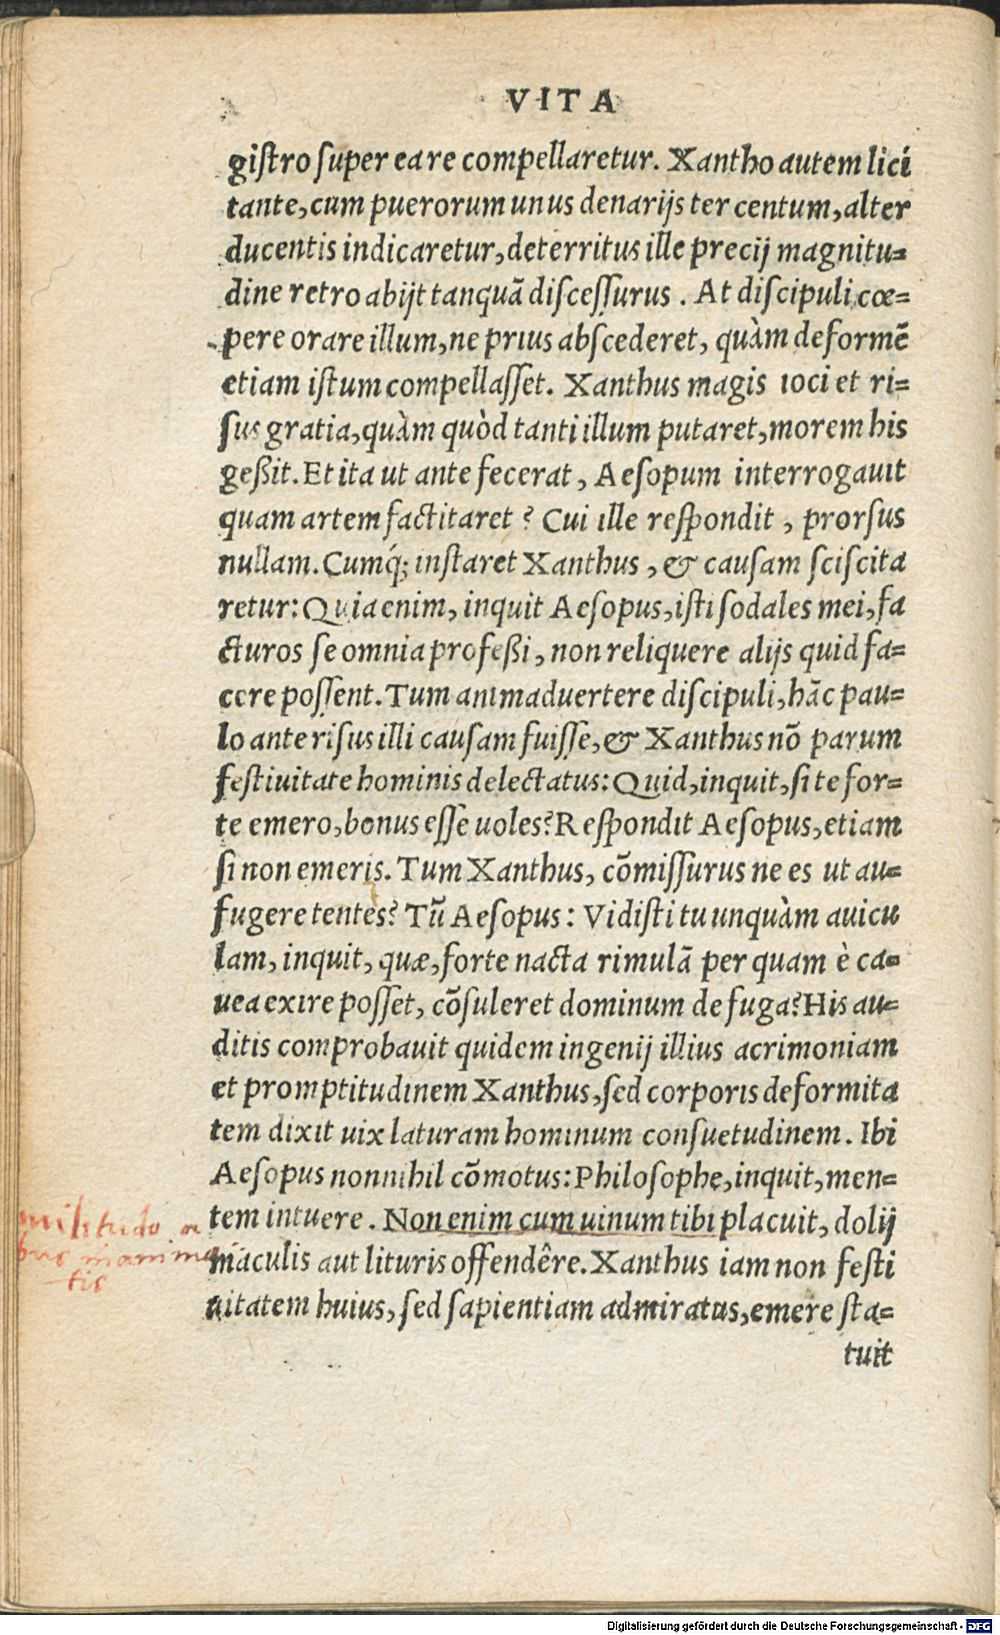 VITA
giſtro ſuper ea re compellaretur. Xantho autem lici
tante, cum puerorum unus denarijs ter centum, alter
ducentis indicaretur, deterritus ille precij magnitu=
dine retro abijt tanquã diſceſſurus. At diſcipuli cœ=
pere orare illum, ne prius abſcederet, quàm deformẽ
etiam iſtum compellaſſet. Xanthus magis ioci et ri=
ſus gratia, quàm quòd tanti illum putaret, morem his
geßit. Et ita ut ante fecerat, Aeſopum interrogauit
quam artem factitaret? Cui ille reſpondit, prorſus
nullam. Cumq́; inſtaret Xanthus, & cauſam ſciſcita
retur: Quia enim, inquit Aeſopus, iſti ſodales mei, fa
cturos ſe omnia profeßi, non reliquere alijs quid fa=
cere poſſent. Tum animaduertere diſcipuli, hãc pau=
lo ante riſus illi cauſam fuiſſe, & Xanthus nõ parum
feſtiuitate hominis delectatus: Quid, inquit, ſi te for=
te emero, bonus eſſe uoles? Reſpondit Aeſopus, etiam
ſi non emeris. Tum Xanthus, cõmiſſurus ne es ut au=
fugere tentes? Tũ Aeſopus: Vidiſti tu unquàm auicu
lam, inquit, quæ, forte nacta rimulã per quam è ca=
uea exire poſſet, cõſuleret dominum de fuga? His au=
ditis comprobauit quidem ingenij illius acrimoniam
et promptitudinem Xanthus, ſed corporis deformita
tem dixit uix laturam hominum conſuetudinem. Ibi
Aeſopus nonnihil cõmotus: Philoſophe, inquit, men=
tem intuere. Non enim cum uinum tibi placuit, dolij
maculis aut lituris offendêre. Xanthus iam non feſti
uitatem huius, ſed ſapientiam admiratus, emere ſta=
tuit
Digitalisierung gefördert durch die Deutsche Forschungsgemeinschaft - DFG